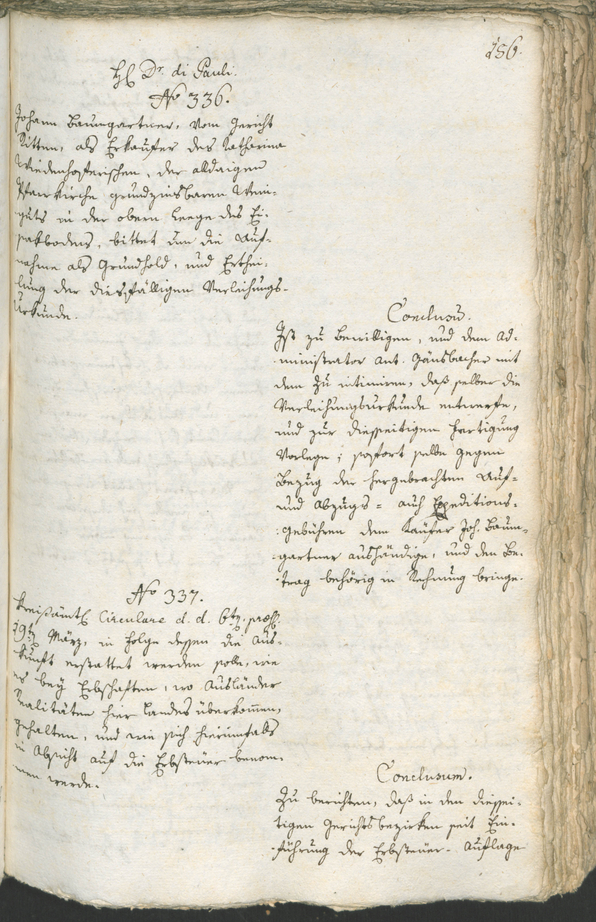 156.
H. Dr. di Pauli.
No 336.
Johann Baumgartner, vom Gericht
Ritten, als Erkäufer des Katharina
Wiedenhoferischen, der alldaigen
Pfarrkirche grundzinsbaren Wein-
guts in der obern Leege des Ei-
sakbodens, bittet um die Auf-
nahme als Grundhold, und Erthei-
lung der diesfälligen Verleihungs-
Urkunde.
Conclusum.
Ist zu bewilligen, und dem Ad-
ministrator Ant. Gänsbacher mit
dem zu intimiren, daß selber die
Verleihungsurkunde entwerfe,
und zur diesseitigen Fertigung
vorlege; sofort selbe gegen
Bezug der hergebrachten Auf-
und Abzugs- auch Expeditions-
gebühren dem Käufer Joh. Baum-
gartner aushändige, und den Be-
trag behörig in Rechnung bringe.
No 337.
Kreisämtl. Circulare d. d. 6ten, präs.
19ten März, in Folge dessen die Aus-
kunft erstattet werden solle, wie
es bey Erbschaften, wo Ausländer
Realitäten hier Landes überkommen,
gehalten, und wie sich hierinfalls
in Absicht auf die Erbsteuer benom-
men werde.
Conclusum.
Zu berichten, daß in den diessei-
tigen Gerichtsbezirken seit Ein-
führung der Erbsteuer- Auflage